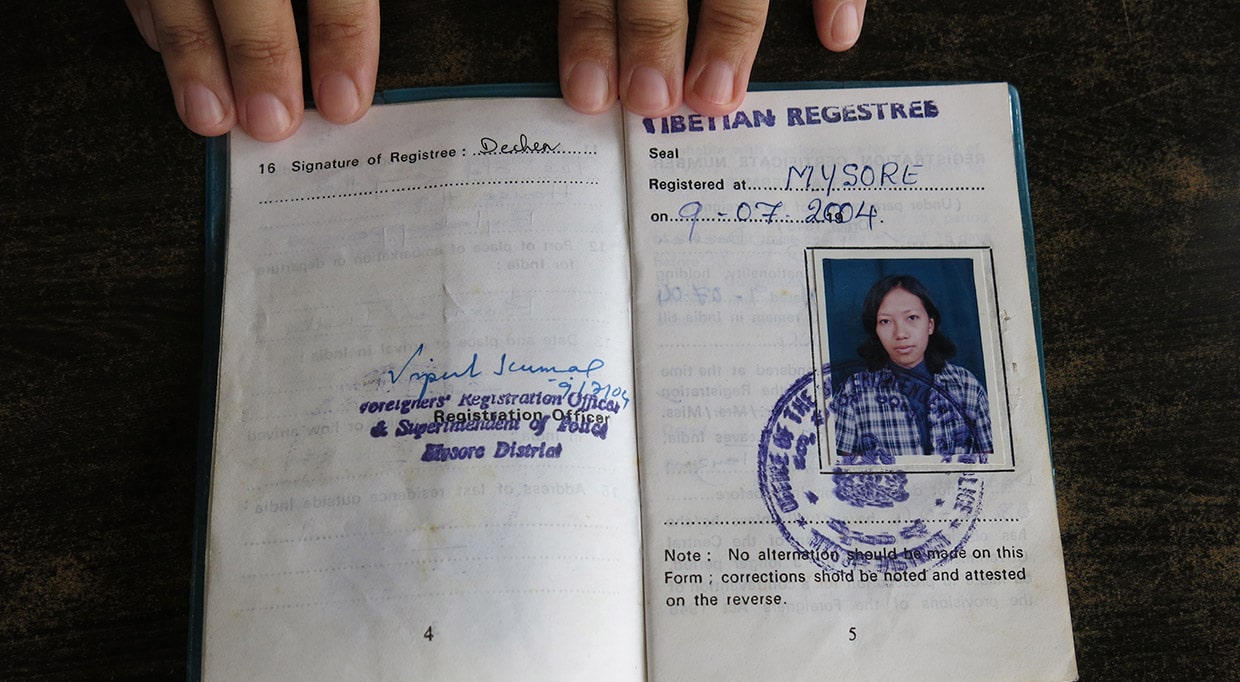 16 Signature of Registree : Dechen
Vipul Kumar
9/7/04
Foreigners' Registration Officer
Registration Officer
& Superintendent of Police
Mysore District
4
TIBETIAN REGESTREE
Seal
Registered at MYSORE
on 9-07-2004. 19
OFFICE OF THE SUPERINTENDENT
Note : No alternation should be made on this
Form ; corrections shold be noted and attested
on the reverse.
5